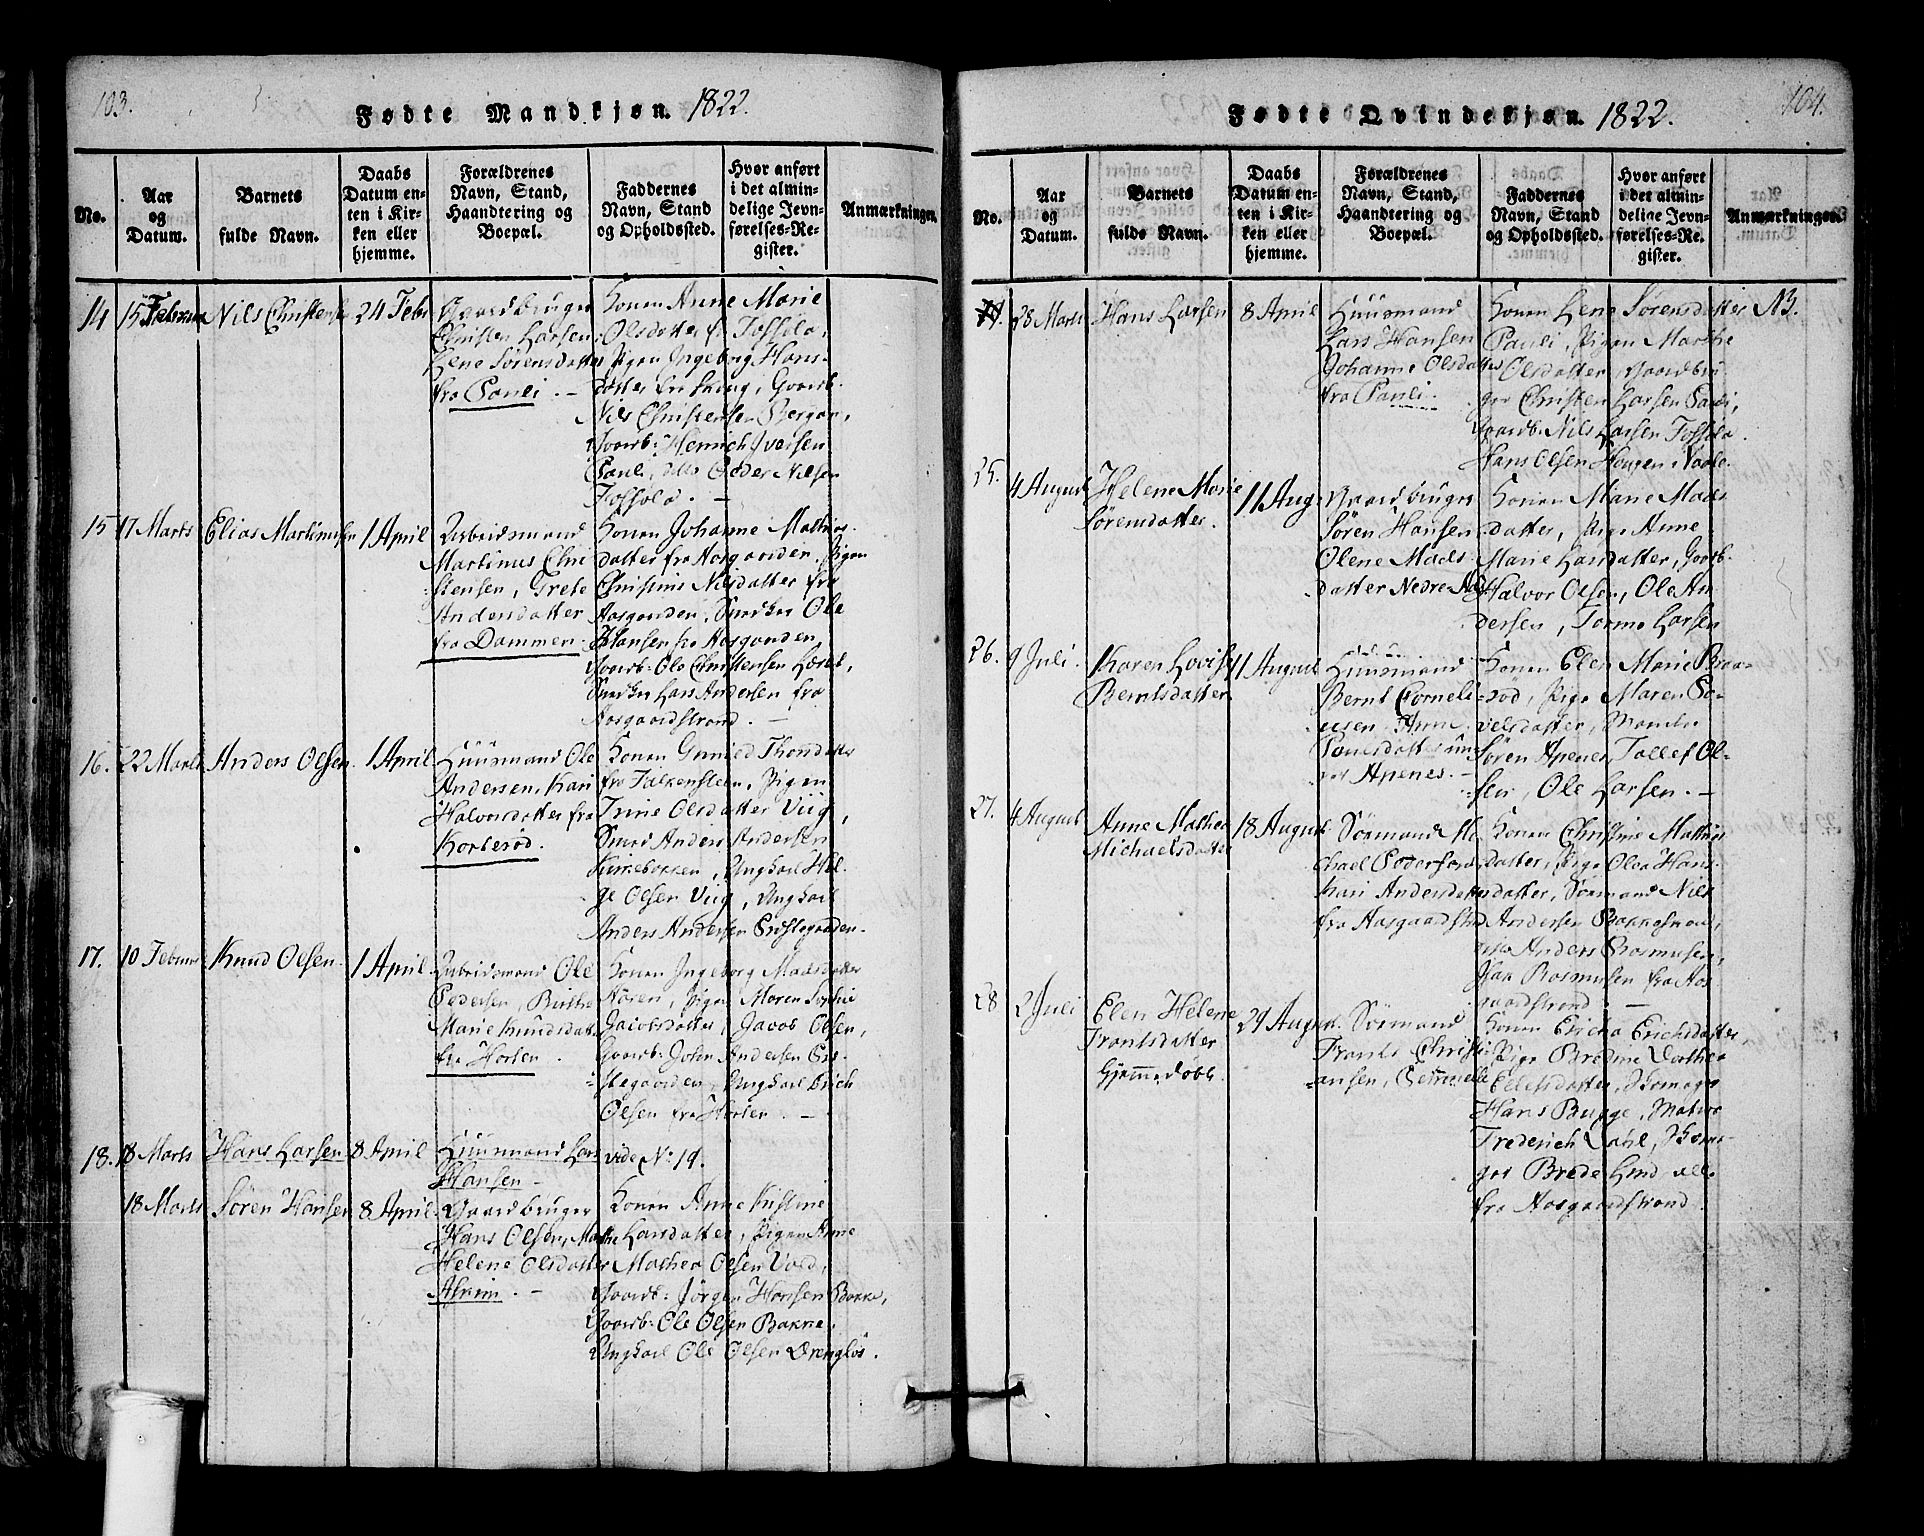 103.
Fødte Mandkjøn. 1822.
No.
Aar
og
Datum.
Barnets
fulde Navn.
Daabs
Datum en-
ten i Kir-
ken eller
hjemme.
Forældrenes
Navn, Stand,
Haandtering og
Boepæl.
Faddernes
Navn, Stand
og Opholdssted.
Hvor anført
i det almin-
delige Jevn-
førelses-Re-
gister.
Anmærkninger.
14
15 Februar
Nils Christensen
24 Febr
Gaardbruger
Christen Larsen
Lene Sørensdatter
fra Pauli.
Konen Anne Marie
Olsdatter fr Fosselø
Pigen Ingeborg Hans-
datter fra Skoug, Gaarb.
Nils Christensen Bergan,
Gaarb: Henrich Iversen
Pauli, Peder Nilsen
Fosselø. –
15
17 Marts
Elias Martinusen
1 April
Arbeidsmand
Martinus Chri
stensen, Grete
Andersdatter
fra Dammen.
Konen Johanne Mathias
datter fra Aasgaarden, Pigen
Christine Nilsdatter fra
Aasgaarden, Snedker Ole
Hansen fra Aasgaarden,
Gaarb: Ole Christensen
Snedker Lars Andersen fra
Aasgaardstrand. –
16.
22 Marts
Anders Olsen.
1 April
Huusmand Ole
Andersen, Kari
Halvorsdatter fra
Kortesød.
Konen
fra Falkensteen, Pigen
Trine Olsdatter Viig,
Smed Anders Andersen
Kirkebakken, Ungkarl Hel-
ge Olsen Viig, Ungkarl
Anders Andersen Præstegaarden.
17.
10 Februar
Knud Olsen.
1 April
Arbeidsmand Ole
Pedersen, Birthe
Marie Knudsdatter
fra Horten.
Konen Ingeborg Madsdatter
Pigen Maren Sophie
Jacobsdatter, Jacob Olsen,
Gaarb: John Andersen Præ-
stegaarden, Ungkarl Erich
Olsen fra Horten. –
18.
18 Marts
Hans Larsen
8 April
Huusmand Lars
Hansen –
vide No 19.
18 Marts
Søren Hansen
8 April.
Gaardbruger
Hans Olsen, Marthe
Helene Olsdatter
Afrim. –
Konen Anne Kistine
Larsdatter, Pigen Anne
Mathea Olsen Vold,
Gaarb: Jørgen Hansen Bakke,
Gaarb: Ole Olsen Bakke.
Ungkarl Ole Olsen
104.
Fødte Qvindekjøn. 1822.
No.
Aar
og
Datum.
Barnets
fulde Navn.
Daabs
Datum en-
ten i Kir-
ken eller
hjemme.
Forældrenes
Navn, Stand,
Haandtering og
Boepæl.
Faddernes
Navn, Stand
og Opholdssted.
Hvor anført
i det almin-
delige Jevn-
førelses-Re-
gister.
Anmærkninger.
28 Marts
Hans Larsen
8 April
Huusmand
Lars Hansen
Johanne Olsdatter
fra Pauli.
Konen Lene Sørensdatter
Pauli, Pigen Marthe
Olsdatter, Gaardbru
ger Christen Larsen Pauli,
Gaarb: Nils Larsen Fosselø.
Hans Olsen Haugen
NB.
25.
4 August
Helene Marie
Sørensdatter.
11 Aug.
Gaardbruger
Søren Hansen
Olene Mads
datter Nedre
Konen Marie Mads
datter, Pige Anne
Marie Larsdatter, Gaarb-
Halvor Olsen, Ole An
dersen, Tormo Larsen
26.
9 Juli.
Karen Lovise
Berntsdatter
11 August
Huusmand
Bernt Corneli
usen,
Apenes. –
Konen Elen Marie Braa-
rød, Pige Maren Po-
velsdatter,
Søren Apenes, Tollef Ol-
sen, Ole Larsen. –
27.
4 August
Anne Mathea
Michaelsdatter
18 August.
Sømand Mi
chael Pedersen
Kari Andersdatter
fra Aasgaardstrand
Konen Christine Mathias
datter, Pige Olea Hans
datter, Sømand Nils
Andersen Bakkestrand,
Anders Rasmusen,
Rasmusen fra Aas
gaardstrand. –
28
2 Juli
Elen Helene
Frantsdatter
hjemmedøbt.
29 August.
Sømand
Frants Christi
ansen, Petronelle
Konen Ericha Erichsdatter,
Pige Bredine Dorthea
Edelsdatter,
Hans Bugge,
Frederich Dahl,
Brede Lind alle
fra Aasgaardstrand.